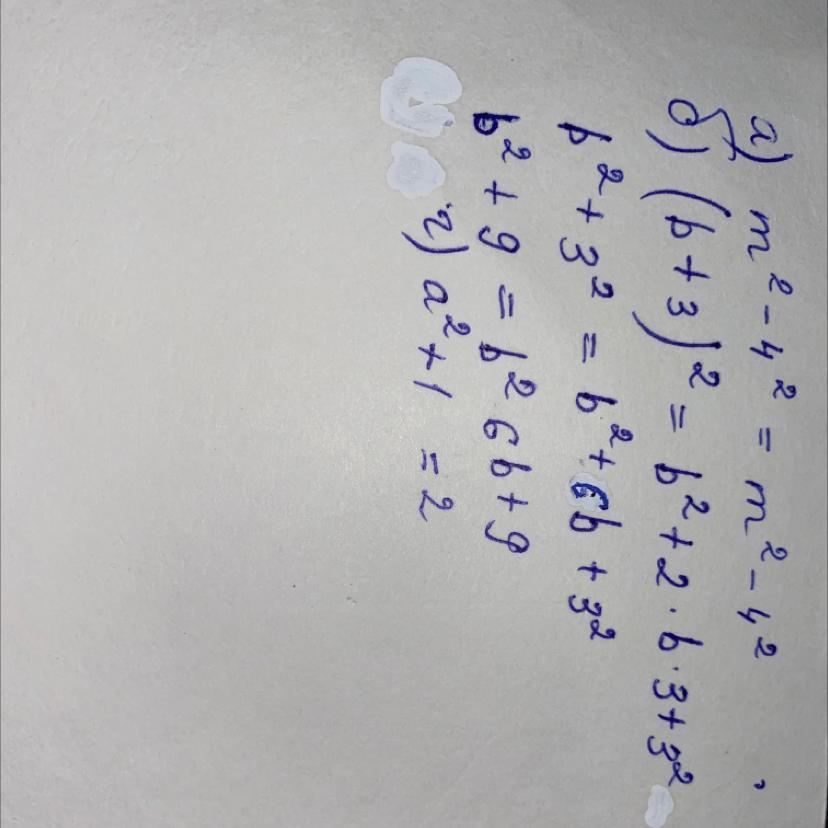 а) m² - 4² = m² - 4²
б) (b + 3)² = b² + 2 · b · 3 + 3²
b² + 3² = b² + 6b + 3²
b² + 9 = b² 6b + 9
г) a² + 1 = 2